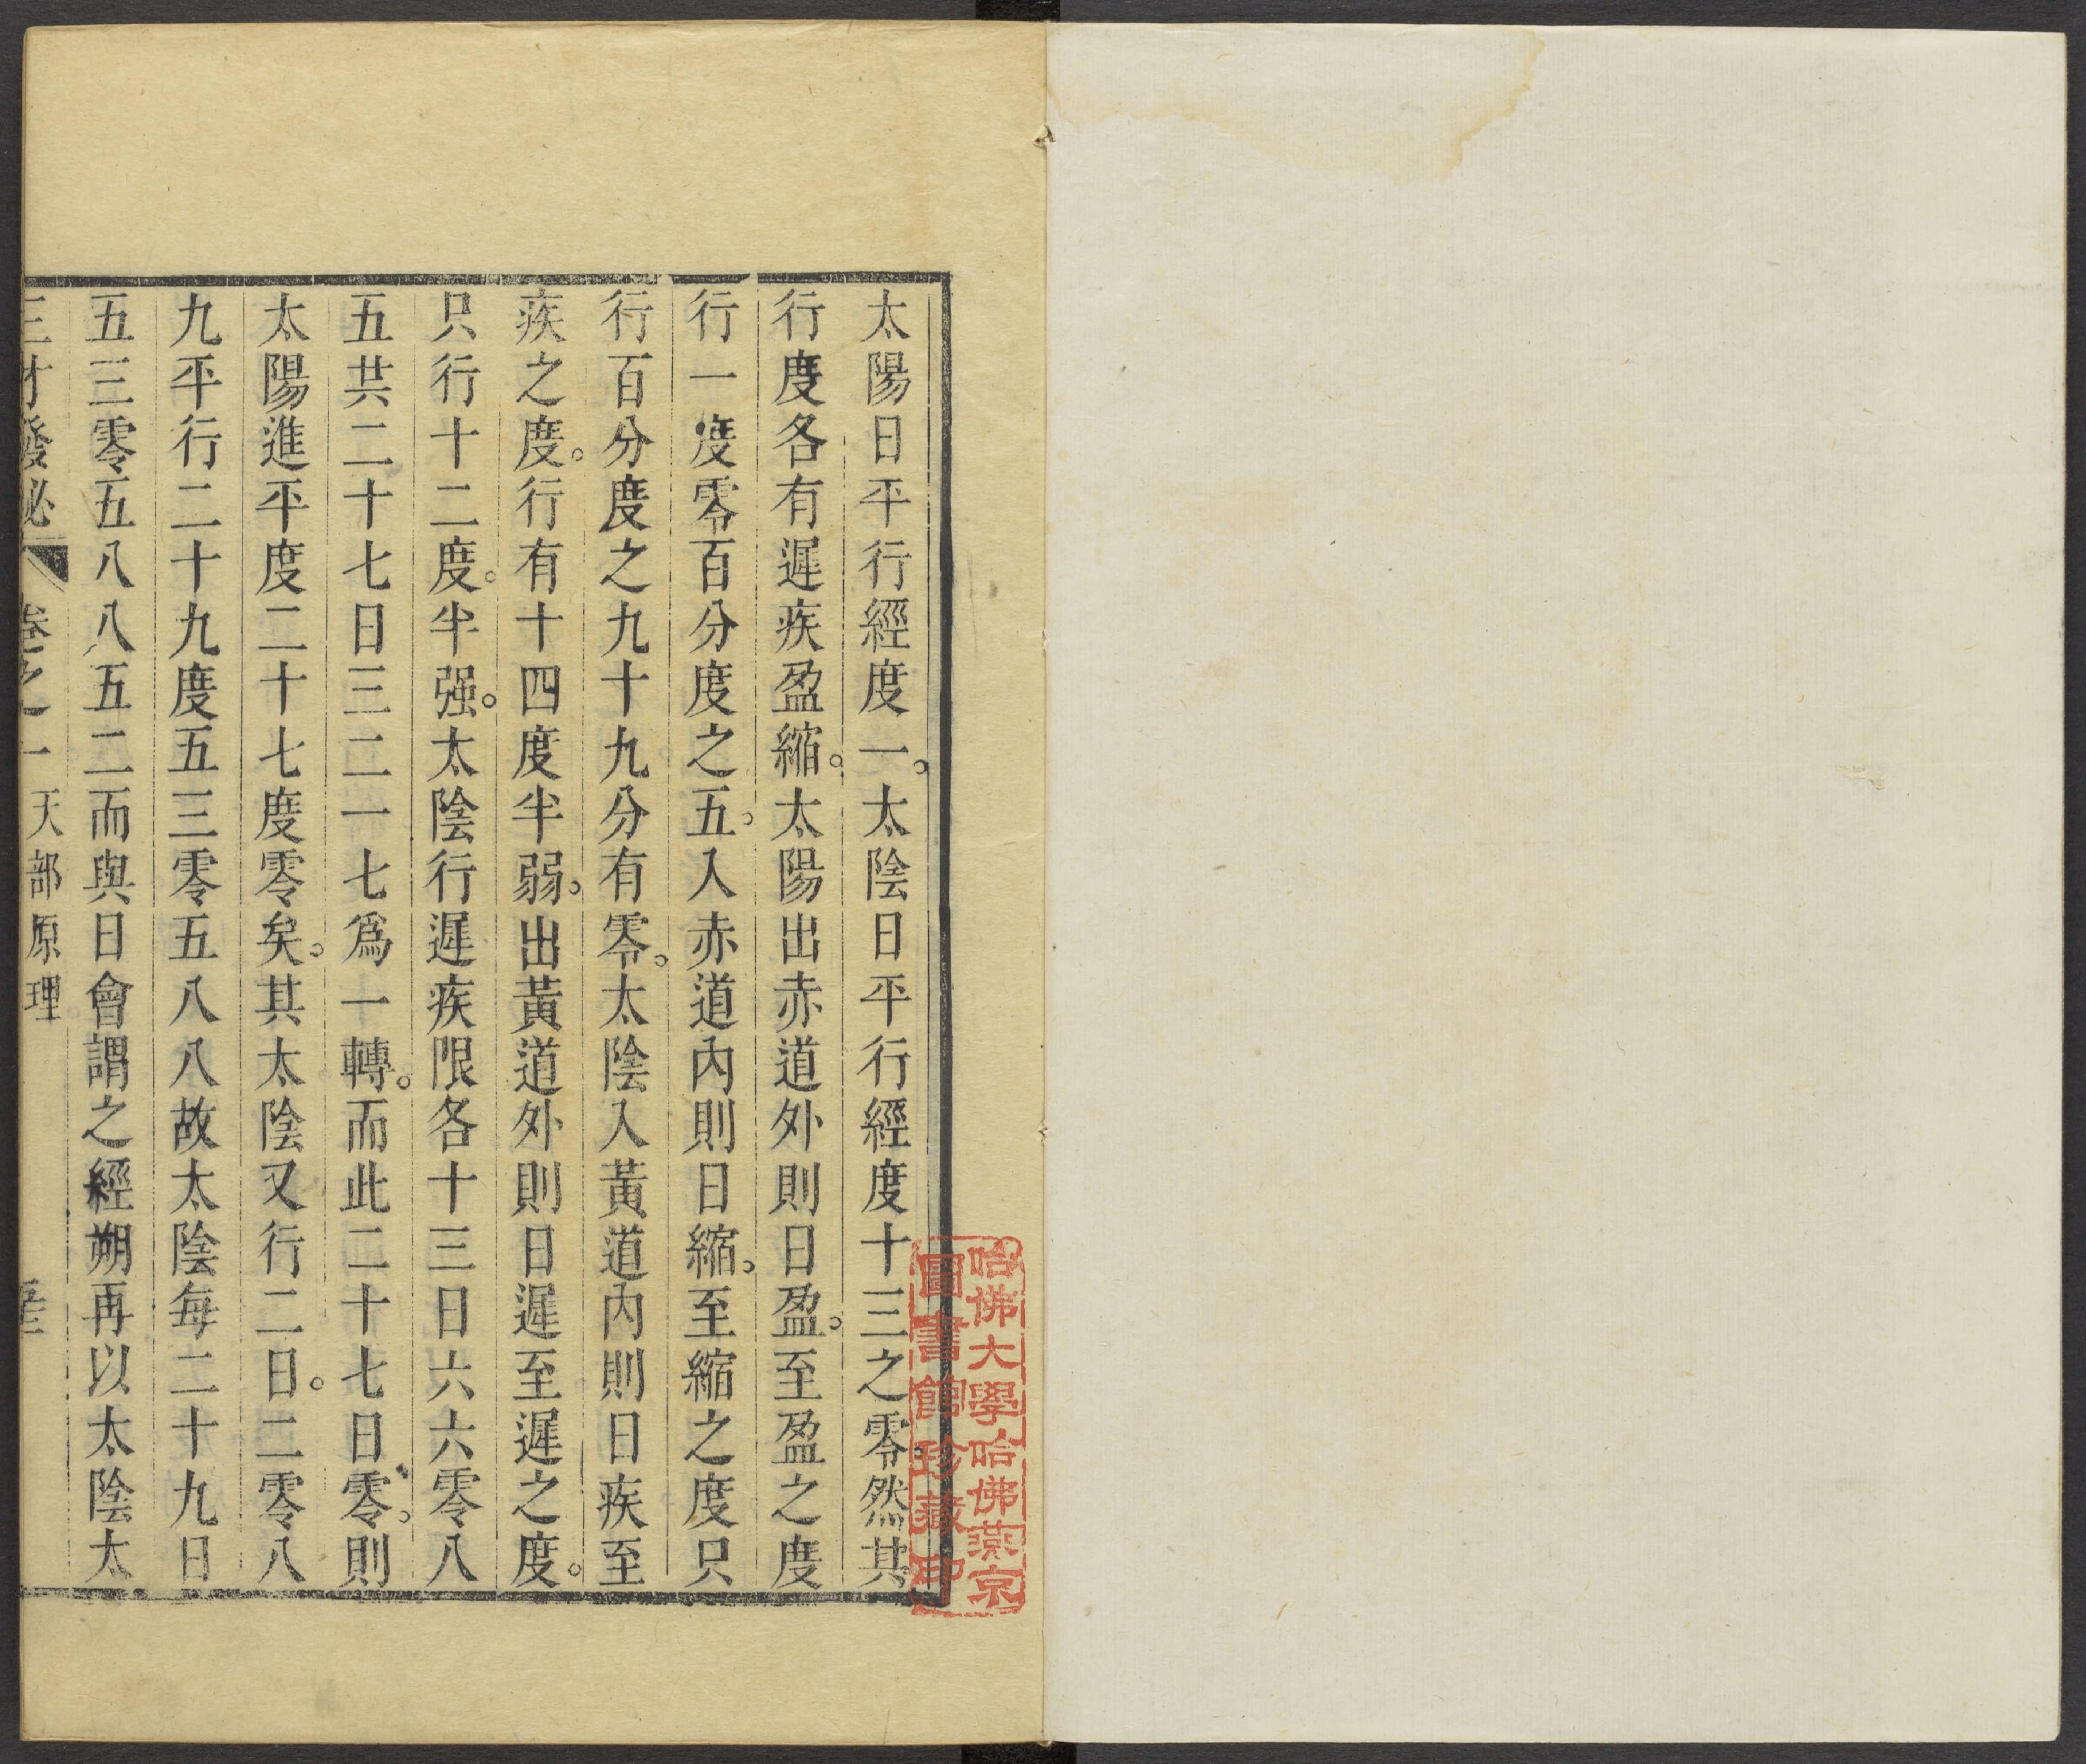 太陽日平行經度一。太陰日平行經度十三之零。然其
行度各有遲疾盈縮。太陽出赤道外則日盈。至盈之度
行一度零百分度之五。入赤道內則日縮。至縮之度只
行百分度之九十九分有零。太陰入黃道內則日疾至
疾之度。行有十四度半弱。出黃道外則日遲至遲之度。
只行十二度。半强。太陰行遲疾限各十三日六六零八
五共二十七日三二一七爲一轉。而此二十七日零。則
太陽進平度二十七度零矣。其太陰又行二日。二零八
九平行二十九度五三零五八八故太陰每二十九日
五三零五八八五二而與日會謂之經朔再以太陰太
三才發秘 卷之一 天部原理
哈佛大學哈佛燕京
圖書館珍藏印